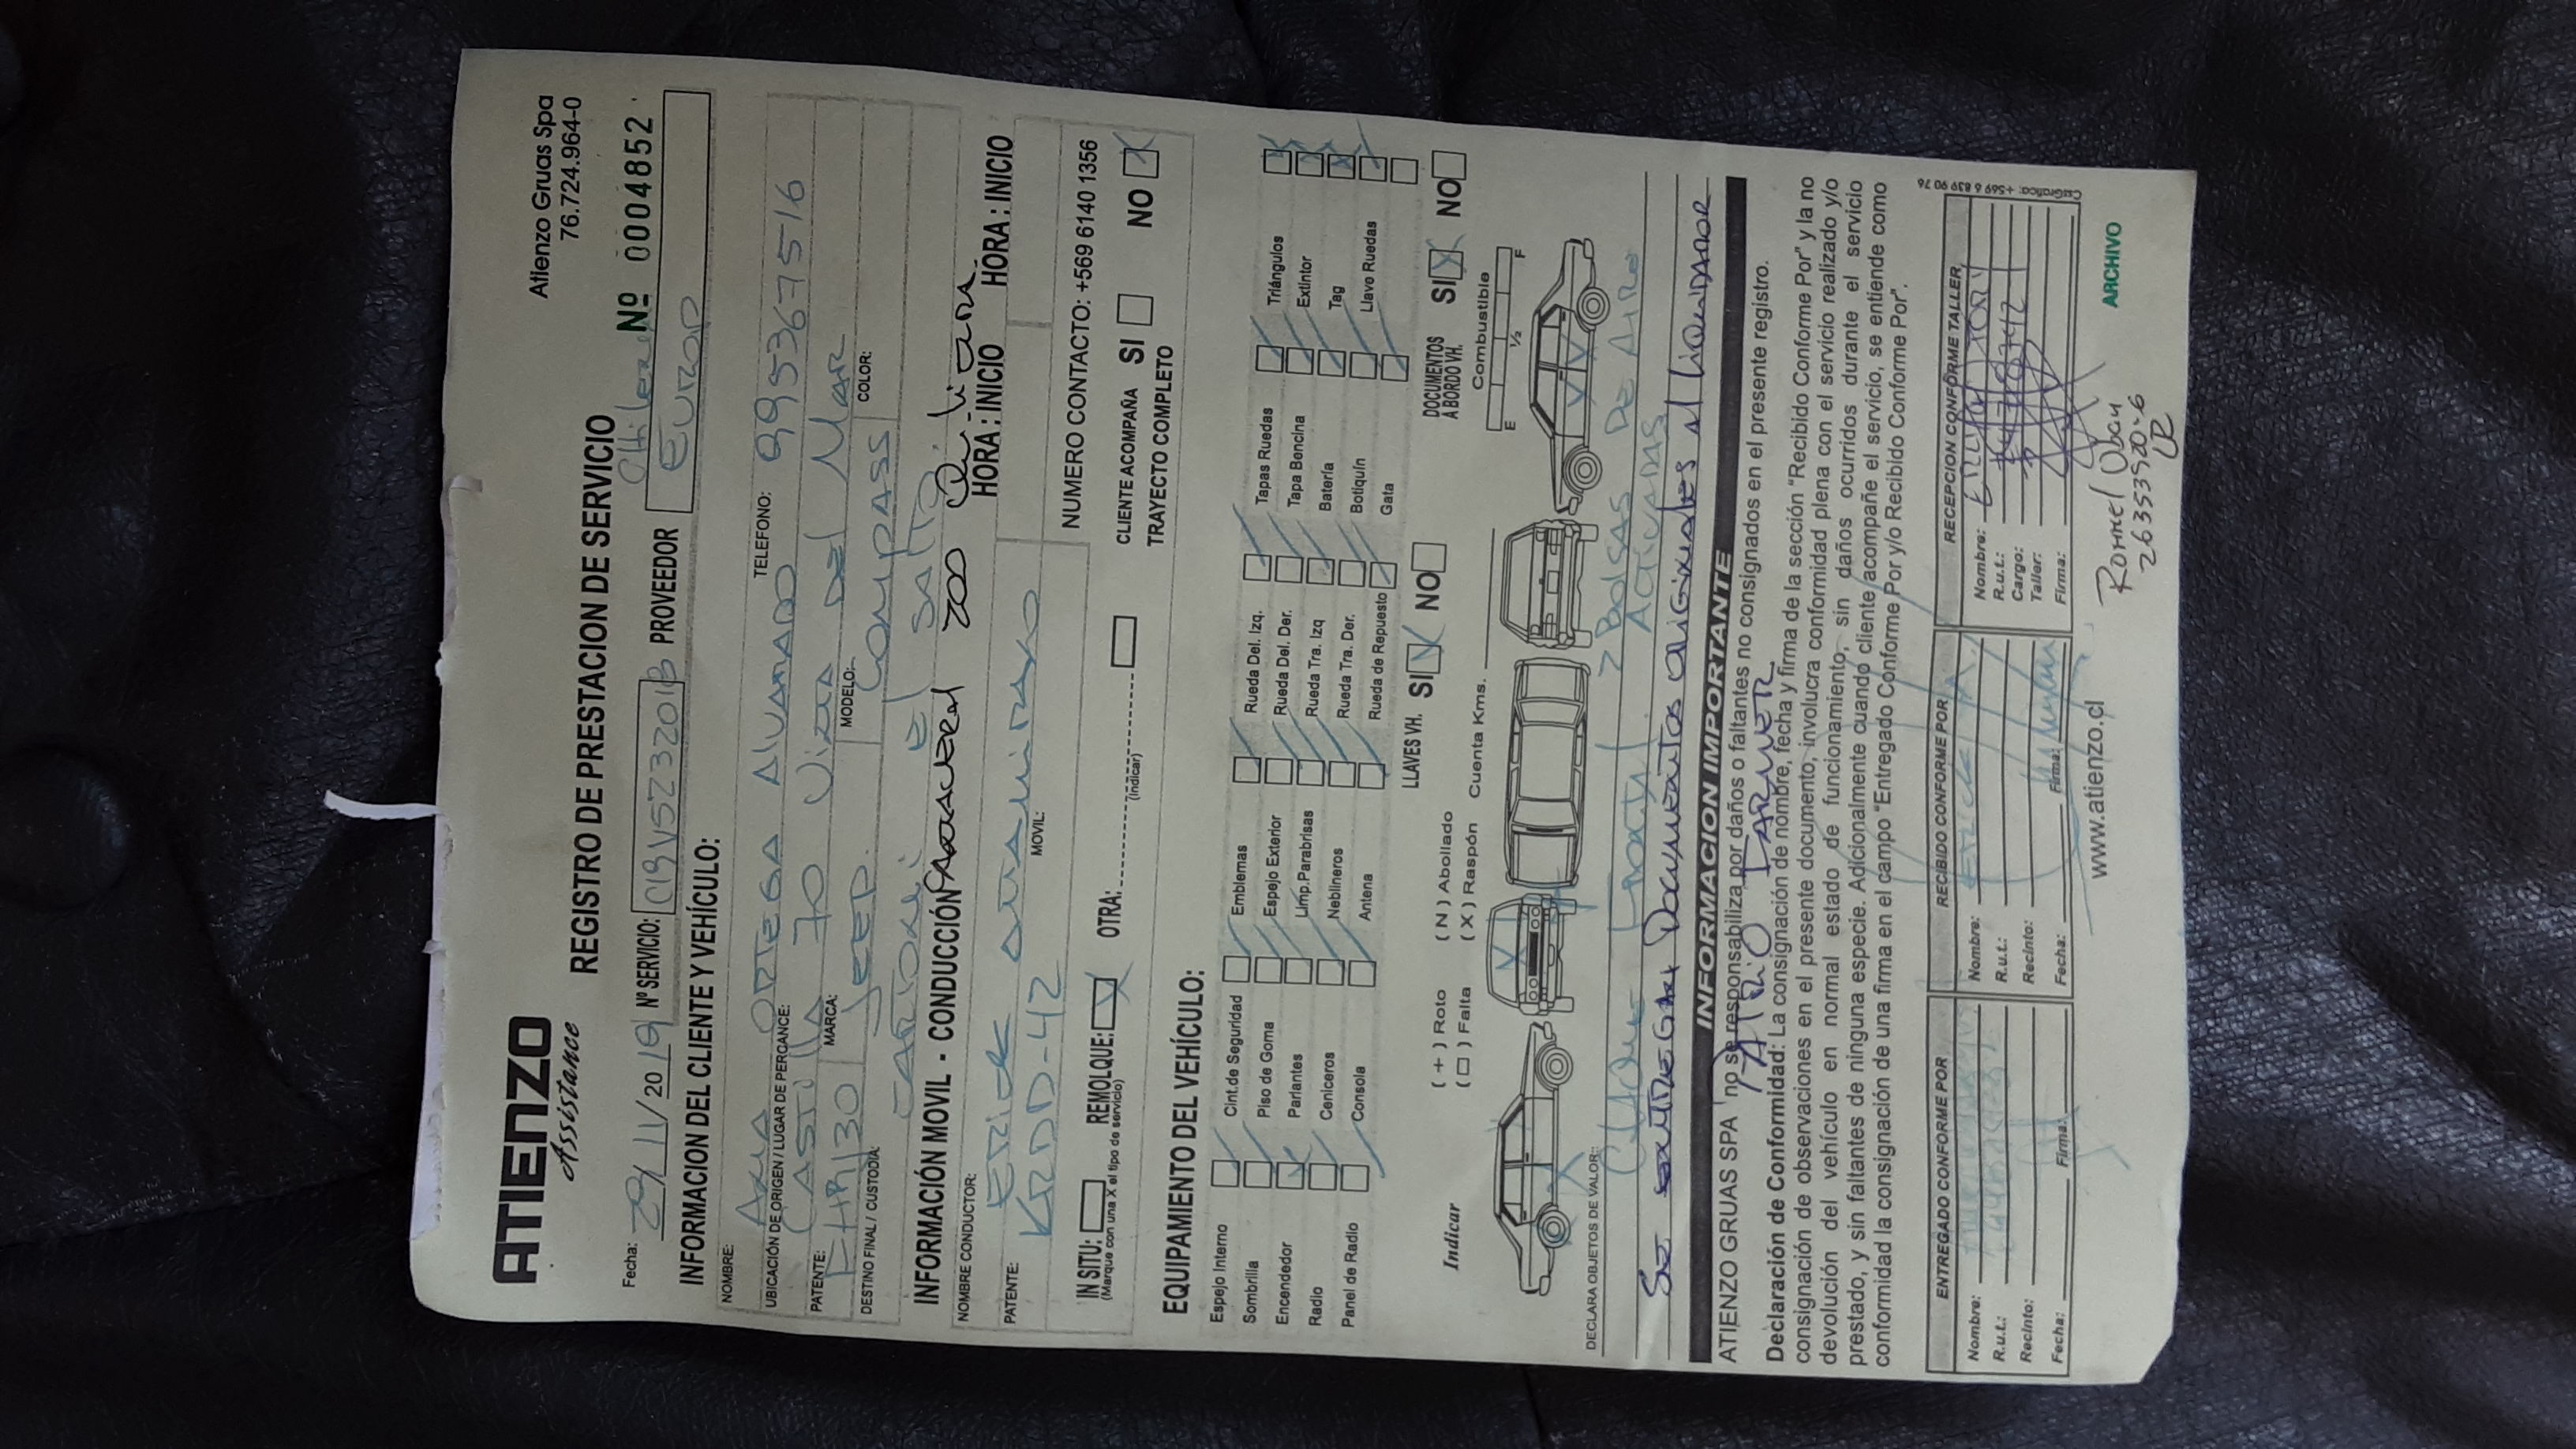 ATIENZO
Assistance
Atienzo Gruas Spa
76.724.964-0
REGISTRO DE PRESTACION DE SERVICIO
Nº 0004852
Fecha: 29/11/2019 Nº SERVICIO: C19V523201B PROVEEDOR EUROP
INFORMACION DEL CLIENTE Y VEHÍCULO:
NOMBRE: ORTEGA ALVARADO TELEFONO: 995367516
UBICACIÓN DE ORIGEN / LUGAR DE PERCANCE: CASTILLA 70 VIÑA DEL MAR
PATENTE: MARCA: JEEP MODELO: COMPASS COLOR:
DESTINO FINAL / CUSTODIA: EL SALTO
INFORMACIÓN MOVIL - CONDUCCIÓN 200 HORA: INICIO HORA: INICIO
NOMBRE CONDUCTOR: ERICK
PATENTE: KRDD-42 MOVIL: NUMERO CONTACTO: +569 6140 1356
IN SITU: REMOLQUE: X OTRA: (indicar)
(Marque con una X el tipo de servicio)
CLIENTE ACOMPAÑA SI NO X
TRAYECTO COMPLETO
EQUIPAMIENTO DEL VEHÍCULO:
Espejo Interno Cint.de Seguridad Emblemas Rueda Del. Izq. Tapas Ruedas Triángulos
Sombrilla Piso de Goma Espejo Exterior Rueda Del. Der. Tapa Bencina Extintor
Encendedor Parlantes Limp.Parabrisas Rueda Tra. Izq Batería Tag
Radio Ceniceros Neblineros Rueda Tra. Der. Botiquín Llave Ruedas
Panel de Radio Consola Antena Rueda de Repuesto Gata
LLAVES VH. SI X NO
DOCUMENTOS A BORDO VH. SI X NO
Indicar ( + ) Roto ( N ) Abollado
( □ ) Falta ( X ) Raspón Cuenta Kms.
Combustible
E 1/2 F
DECLARA OBJETOS DE VALOR: 2 BOLSAS DE AIRE
ACTIVADAS
Documentos originales al liquidador
INFORMACION IMPORTANTE
ATIENZO GRUAS SPA no se responsabiliza por daños o faltantes no consignados en el presente registro.
PATRICIO FARUMER
Declaración de Conformidad: La consignación de nombre, fecha y firma de la sección "Recibido Conforme Por" y la no
consignación de observaciones en el presente documento, involucra conformidad plena con el servicio realizado y/o
devolución del vehículo en normal estado de funcionamiento, sin daños ocurridos durante el servicio
prestado, y sin faltantes de ninguna especie. Adicionalmente cuando cliente acompañe el servicio, se entiende como
conformidad la consignación de una firma en el campo "Entregado Conforme Por y/o Recibido Conforme Por".
ENTREGADO CONFORME POR
Nombre:
R.u.t.:
Recinto:
Fecha: Firma:
RECIBIDO CONFORME POR
Nombre:
R.u.t.:
Recinto:
Fecha: Firma:
RECEPCION CONFORME TALLER
Nombre:
R.u.t.:
Cargo:
Taller:
Firma:
CssGrafica: +569 6 839 90 76
www.atienzo.cl
Rormel Ubau
26353920-6
ARCHIVO